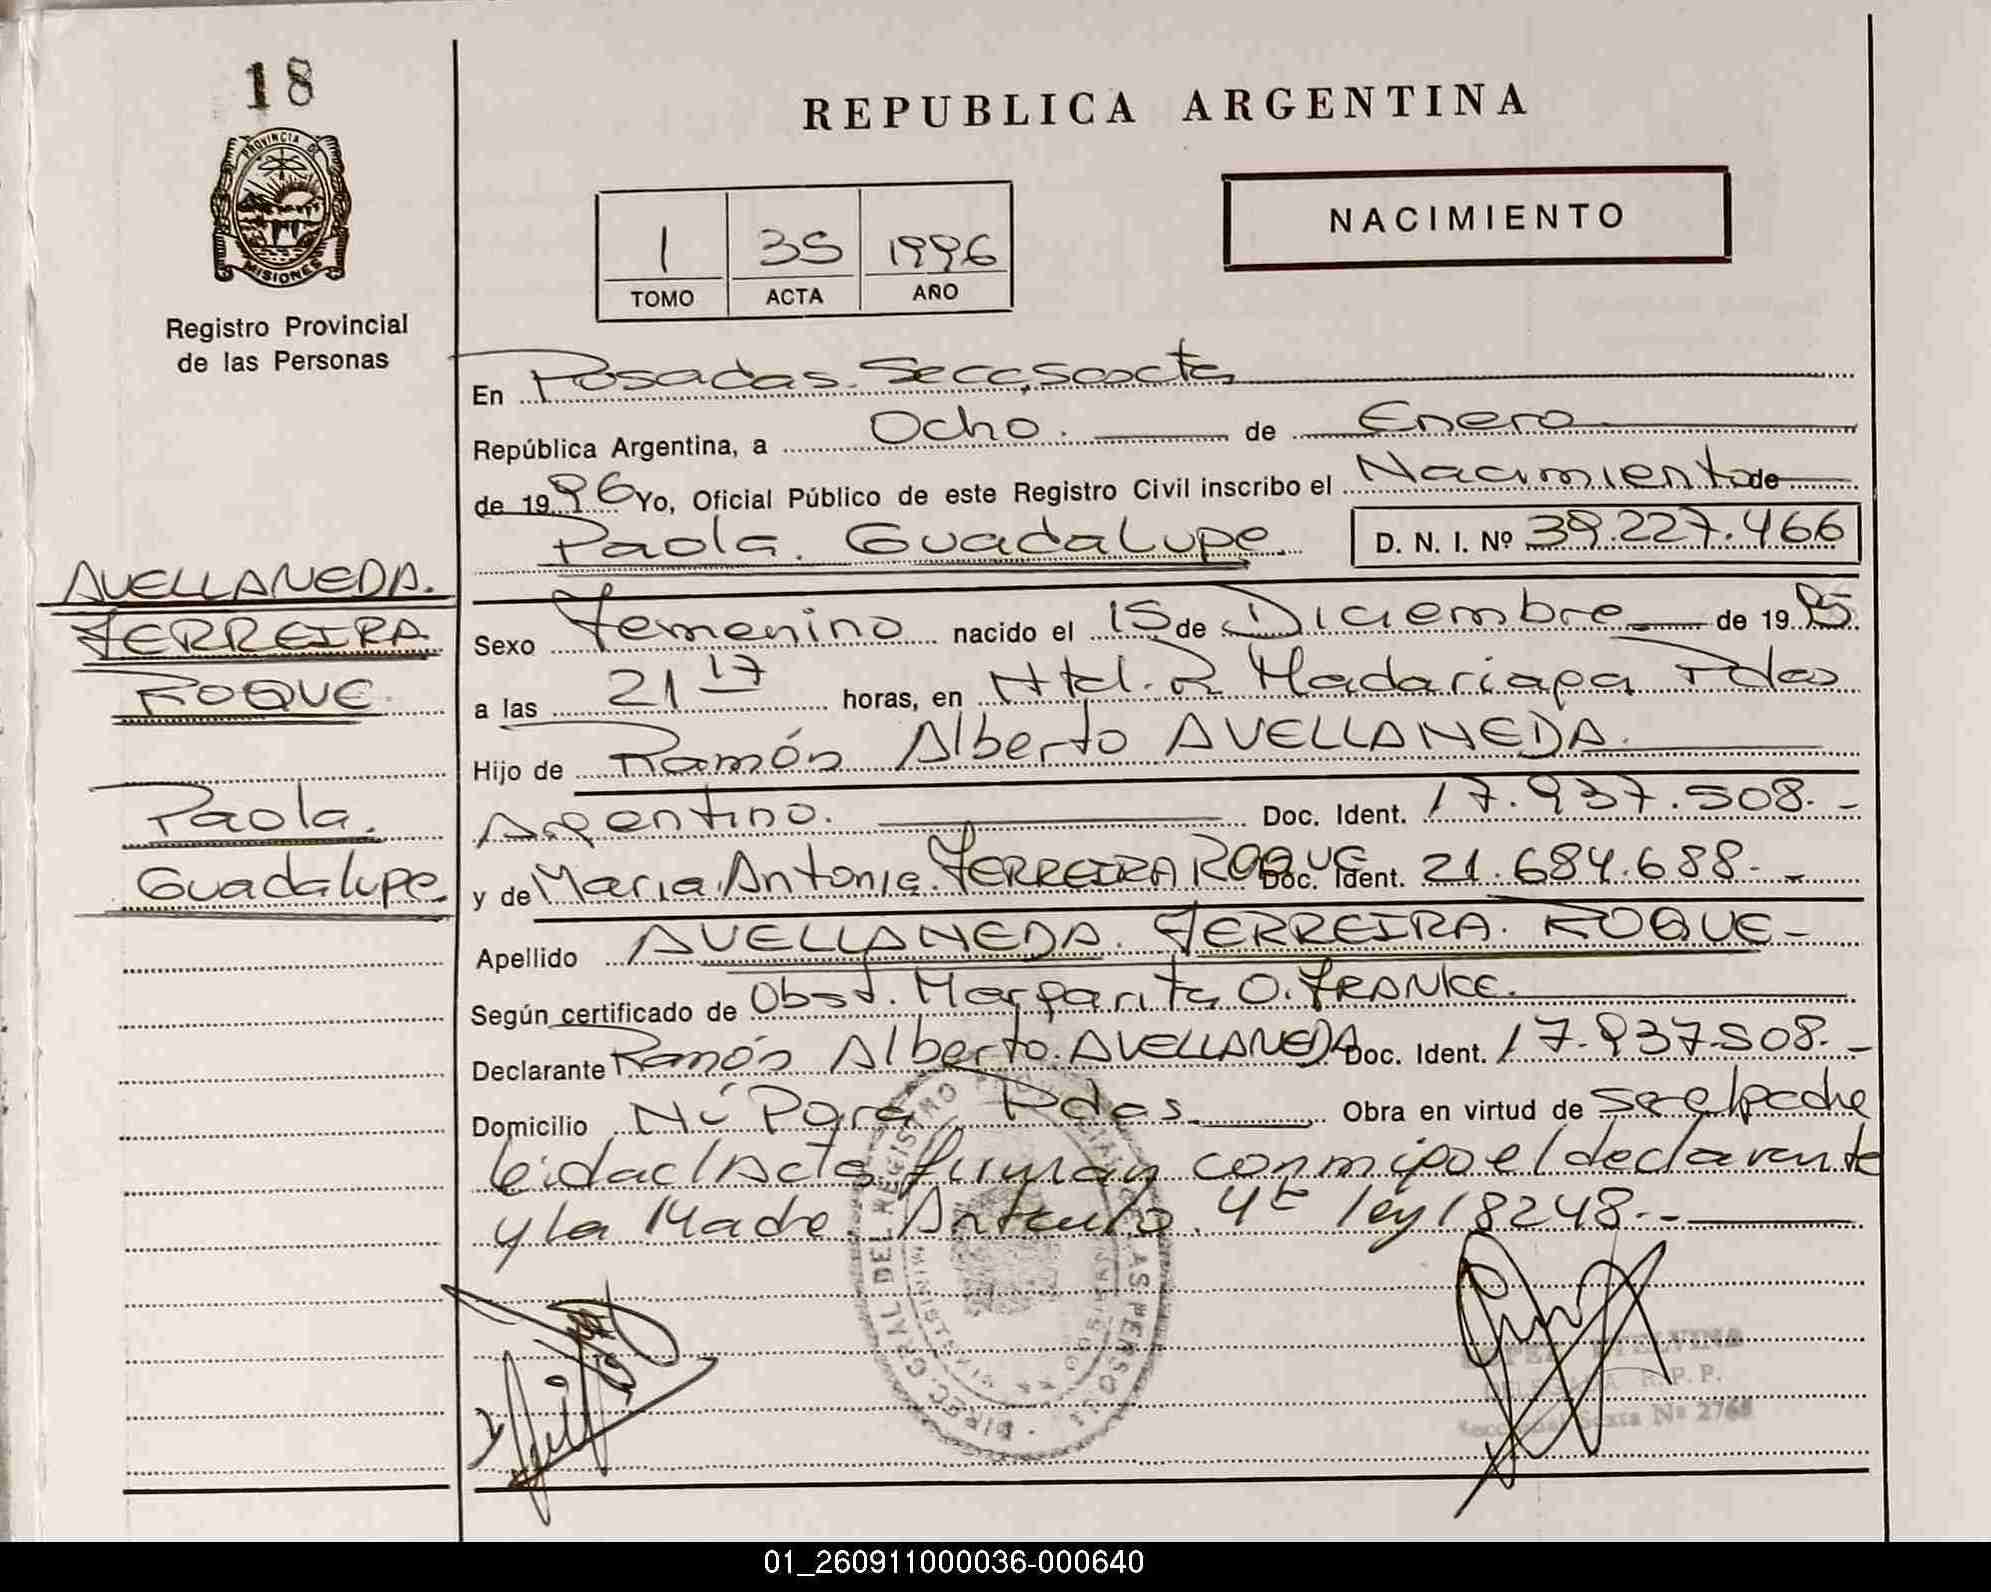 18
PROVINCIA DE
MISIONES
Registro Provincial
de las Personas
REPUBLICA ARGENTINA
NACIMIENTO
1 35 1996
TOMO ACTA AÑO
En Posadas. Secc. Sexta
República Argentina, a Ocho. de Enero
de 1996 Yo, Oficial Público de este Registro Civil inscribo el Nacimiento de
Paola. Guadalupe. D. N. I. Nº 39.227.466
AVELLANEDA.
FERREIRA
ROQUE.
Paola.
Guadalupe.
Sexo Femenino nacido el 15 de Diciembre de 1995.
a las 21 17 horas, en Htal. R Madariaga Pdas
Hijo de Ramón Alberto AVELLANEDA.
Argentino. Doc. Ident. 17.937.508.-
y de Maria Antonia. FERREIRA ROQUE Doc. Ident. 21.684.688.-
Apellido AVELLANEDA. FERREIRA. ROQUE-
Según certificado de Obst. Margarita O. FRANKE.
Declarante Ramón Alberto. AVELLANEDA Doc. Ident. 17.937.508.-
Domicilio Pdas Obra en virtud de ser el padre
leida el Acta firman conmigo el declarante
y la Madre Articulo. 4to ley 18248.-
DIREC. GRAL DEL REGISTRO DE LAS PERSONAS
R. P. P.
Seccional Sexta Nº 2768
01_260911000036-000640